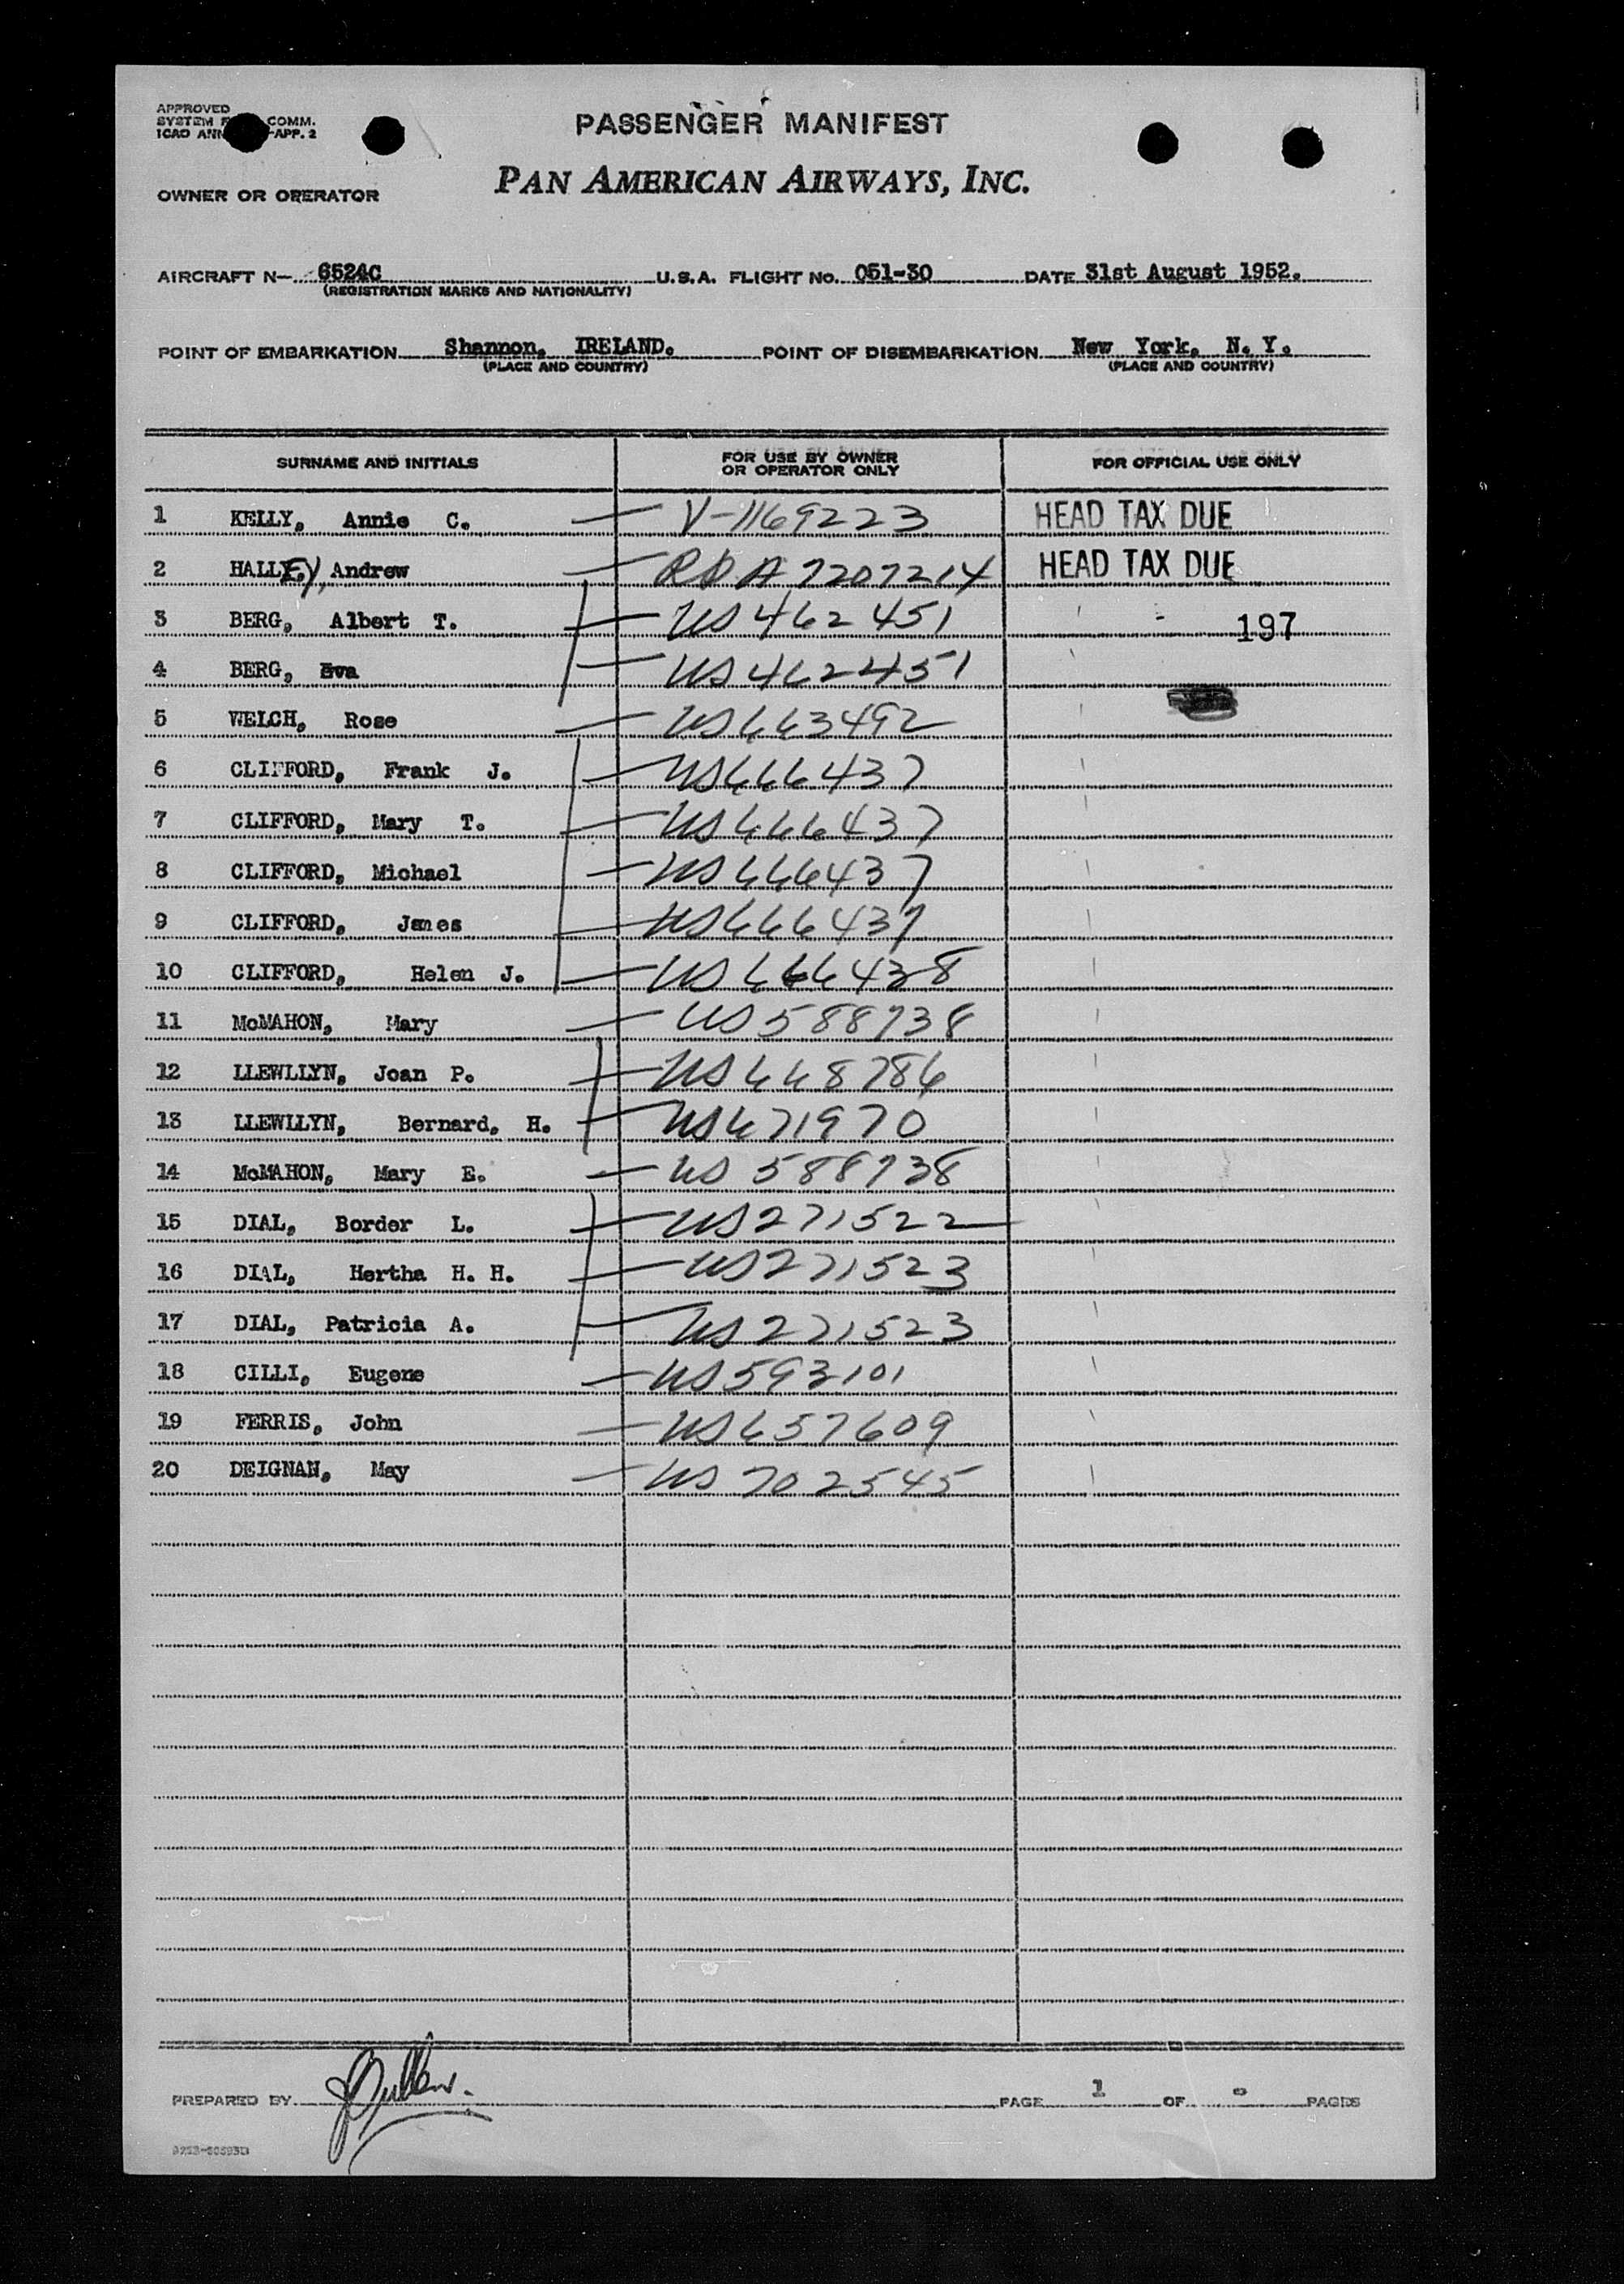 APPROVED
SYSTEM COMM.
ICAO APP. 2
PASSENGER MANIFEST
OWNER OR OPERATOR
PAN AMERICAN AIRWAYS, INC.
AIRCRAFT N— 6524C U.S.A. FLIGHT NO. 051-30 DATE 31st August 1952.
(REGISTRATION MARKS AND NATIONALITY)
POINT OF EMBARKATION Shannon, IRELAND. POINT OF DISEMBARKATION New York, N. Y.
(PLACE AND COUNTRY) (PLACE AND COUNTRY)
SURNAME AND INITIALS FOR USE BY OWNER OR OPERATOR ONLY FOR OFFICIAL USE ONLY
1 KELLY, Annie C. — V-1169223 HEAD TAX DUE
2 HALLEY, Andrew — A7207214 HEAD TAX DUE
3 BERG, Albert T. — US 462451 197
4 BERG, Eva — US 462451
5 WELCH, Rose — US 663492
6 CLIFFORD, Frank J. — US 666437
7 CLIFFORD, Mary T. — US 666437
8 CLIFFORD, Michael — US 666437
9 CLIFFORD, James — US 666437
10 CLIFFORD, Helen J. — US 666438
11 McMAHON, Mary — US 588738
12 LLEWLLYN, Joan P. — US 668786
13 LLEWLLYN, Bernard, H. — US 671970
14 McMAHON, Mary E. — US 588738
15 DIAL, Border L. — US 271522
16 DIAL, Hertha H. H. — US 271523
17 DIAL, Patricia A. — US 271523
18 CILLI, Eugene — US 593101
19 FERRIS, John — US 657609
20 DEIGNAN, May — US 702545
PREPARED BY PAGE 1 OF PAGES